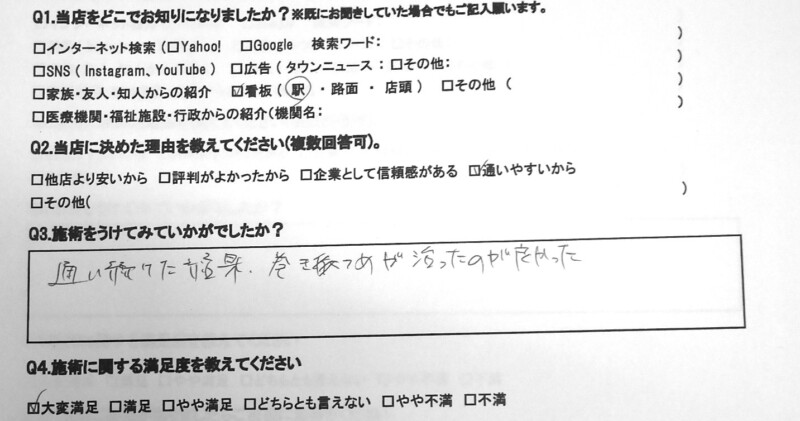 Q1.当店をどこでお知りになりましたか？※既にお聞きしていた場合でもご記入願います。
□インターネット検索（□Yahoo! □Google 検索ワード： ）
□SNS（Instagram、YouTube） □広告（タウンニュース：□その他： ）
□家族・友人・知人からの紹介 ☑看板（駅・路面・店頭） □その他（ ）
□医療機関・福祉施設・行政からの紹介（機関名： ）
Q2.当店に決めた理由を教えてください（複数回答可）。
□他店より安いから □評判がよかったから □企業として信頼感がある ☑通いやすいから
□その他（ ）
Q3.施術をうけてみていかがでしたか？
通い続けた結果、巻きつめが治ったのが良かった
Q4.施術に関する満足度を教えてください
☑大変満足 □満足 □やや満足 □どちらとも言えない □やや不満 □不満